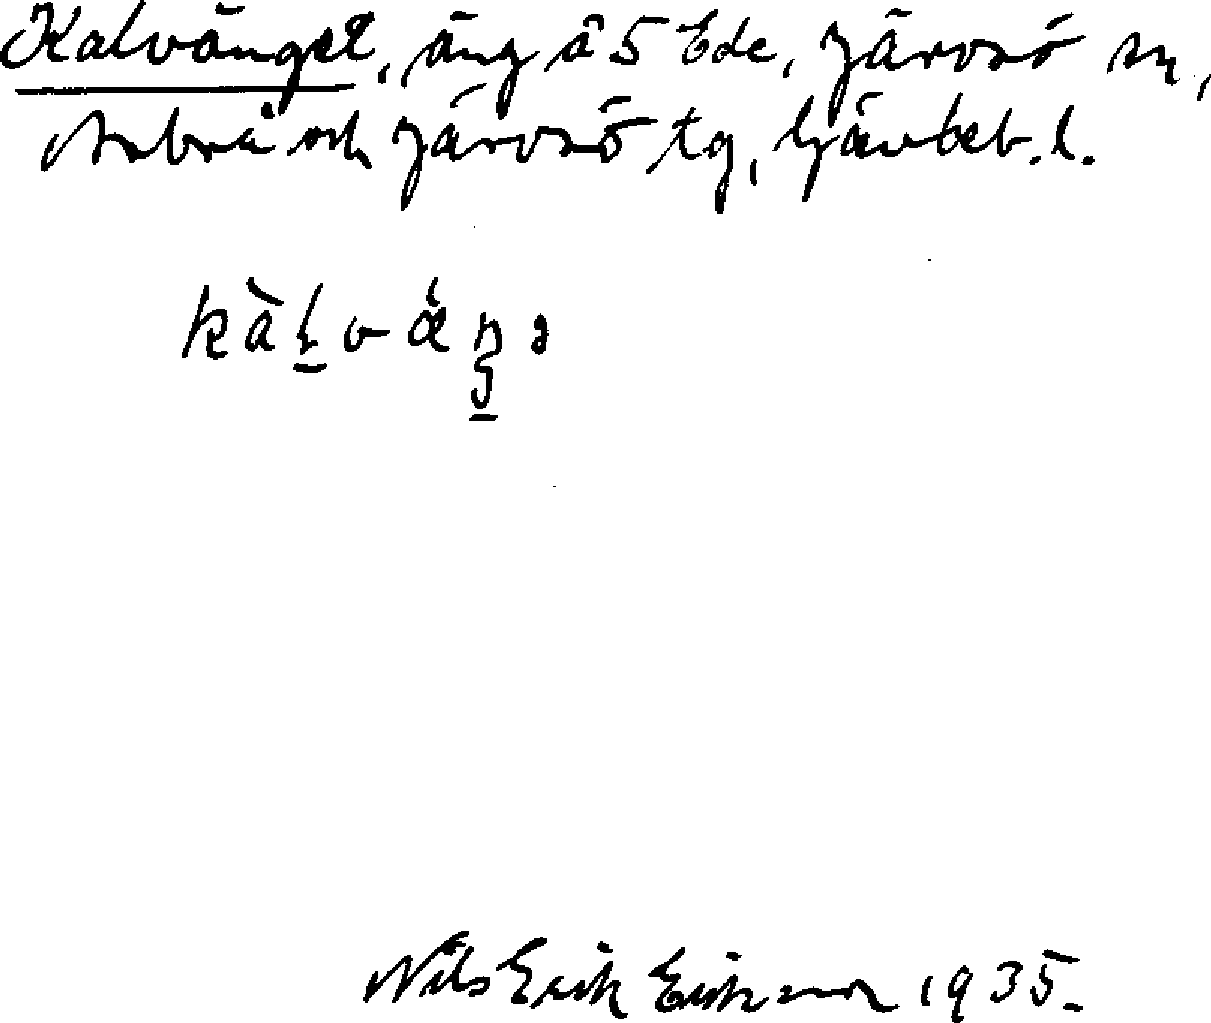 Kalvänget, äng å 5 Ede, Järvsö sn,
Arbrå och Järvsö tg, Gävleb. l.
kàḷvǽŋə
Nils Erik Eriksson 1935.